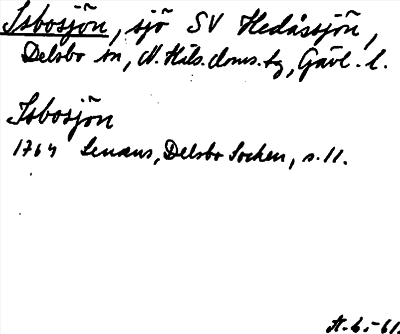 Isbosjön, sjö SV Hedåssjön,
Delsbo sn, N. Häls. doms. tg, Gävl. l.
Isbosjön
1764 Lenæus, Delsbo Socken, s. 11.